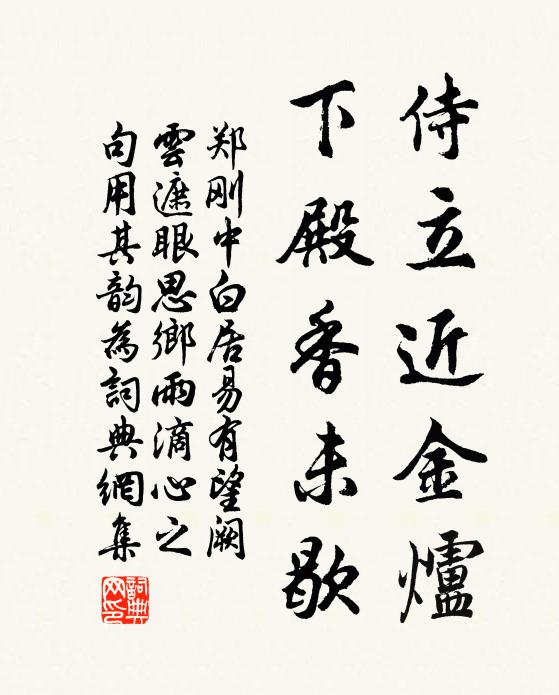 侍立近金爐
下殿香未歇
郑刚中白居易有望阙
雲遮眼思鄉雨滴心之
句用其韵為詞典網集
詞典網印